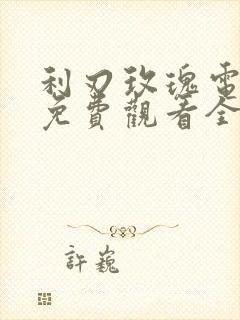 利刃玫瑰電
免費觀看全
許巍